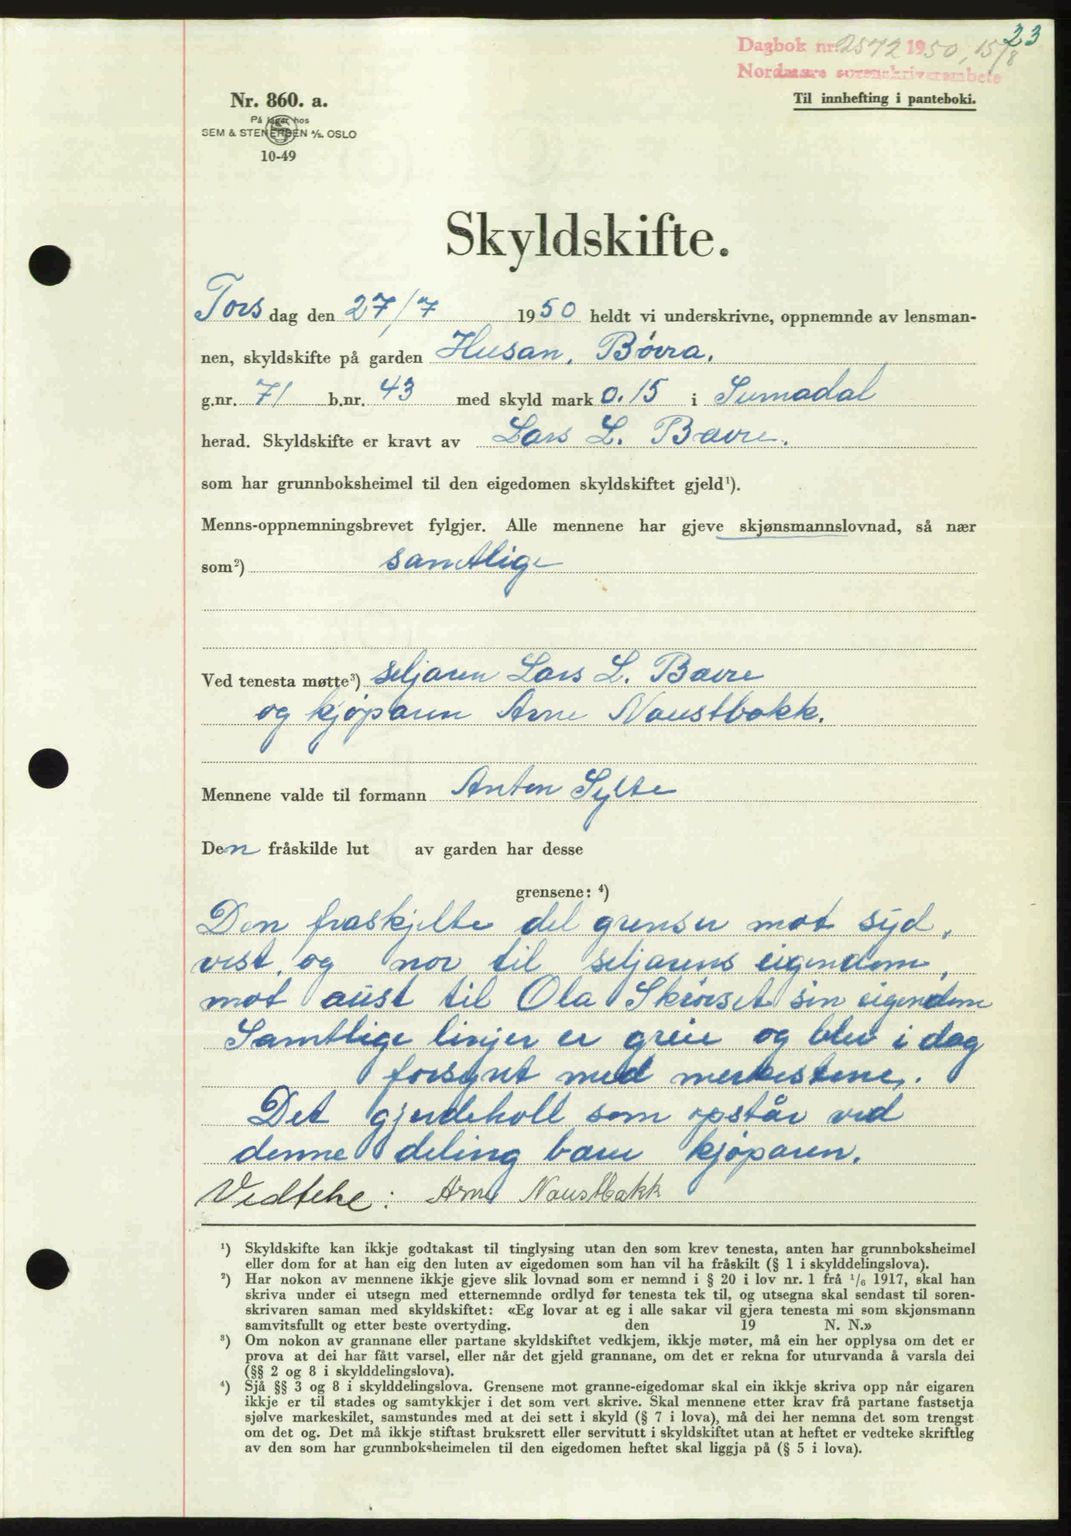 23
Dagbok nr. 2572 1950, 15/8
Nordmøre sorenskriverembete
Til innhefting i panteboki.
Nr. 860. a.
På lager hos
SEM & STENERSEN A/S. OSLO
10-49
Skyldskifte.
Tors dag den 27/7 1950 heldt vi underskrivne, oppnemnde av lensman-
nen, skyldskifte på garden Husan, Bøvra,
g.nr. 71 b.nr. 43 med skyld mark 0.15 i Surnadal
herad. Skyldskifte er kravt av Lars L. Bævre.
som har grunnboksheimel til den eigedomen skyldskiftet gjeld¹).
Menns-oppnemningsbrevet fylgjer. Alle mennene har gjeve skjønsmannslovnad, så nær
som²) samtlige
Ved tenesta møtte³) seljaren Lars L. Bævre
og kjøparen Arne Naustbakk.
Mennene valde til formann Anton Sylte
Den fråskilde lut av garden har desse
grensene: ⁴)
Den fraskjelte del grenser mot syd,
vest, og nor til seljarens eigendom,
mot aust til Ola Skrøvset sin eigendom
Samtlige linjer er greie og blev i dag
forsynt med merkestene,.
Det gjerdehold som opstår ved
denne deling bærer kjøparen.
Vedteke: Arne Naustbakk
¹) Skyldskifte kan ikkje godtakast til tinglysing utan den som krev tenesta, anten har grunnboksheimel
eller dom for at han eig den luten av eigedomen som han vil ha fråskilt (§ 1 i skylddelingslova).
²) Har nokon av mennene ikkje gjeve slik lovnad som er nemnd i § 20 i lov nr. 1 frå ¹/₆ 1917, skal han
skriva under ei utsegn med etternemnde ordlyd før tenesta tek til, og utsegna skal sendast til soren-
skrivaren saman med skyldskiftet: «Eg lovar at eg i alle sakar vil gjera tenesta mi som skjønsmann
samvitsfullt og etter beste overtyding. den 19 N. N.»
³) Om nokon av grannane eller partane skyldskiftet vedkjem, ikkje møter, må ein her opplysa om det er
prova at dei har fått varsel, eller når det gjeld grannane, om det er rekna for uturvanda å varsla dei
(§§ 2 og 8 i skylddelingslova).
⁴) Sjå §§ 3 og 8 i skylddelingslova. Grensene mot granne-eigedomar skal ein ikkje skriva opp når eigaren
ikkje er til stades og samtykkjer i det som vert skrive. Skal mennene etter krav frå partane fastsetja
sjølve markeskilet, samstundes med at dei sett i skyld (§ 7 i lova), må dei her nemna det som trengst
om det og. Det må ikkje stiftast bruksrett eller servitutt i skyldskiftet utan at heftet er vedteke skriftleg
av den som har grunnboksheimelen til den eigedomen heftet skal liggja på (§ 5 i lova).